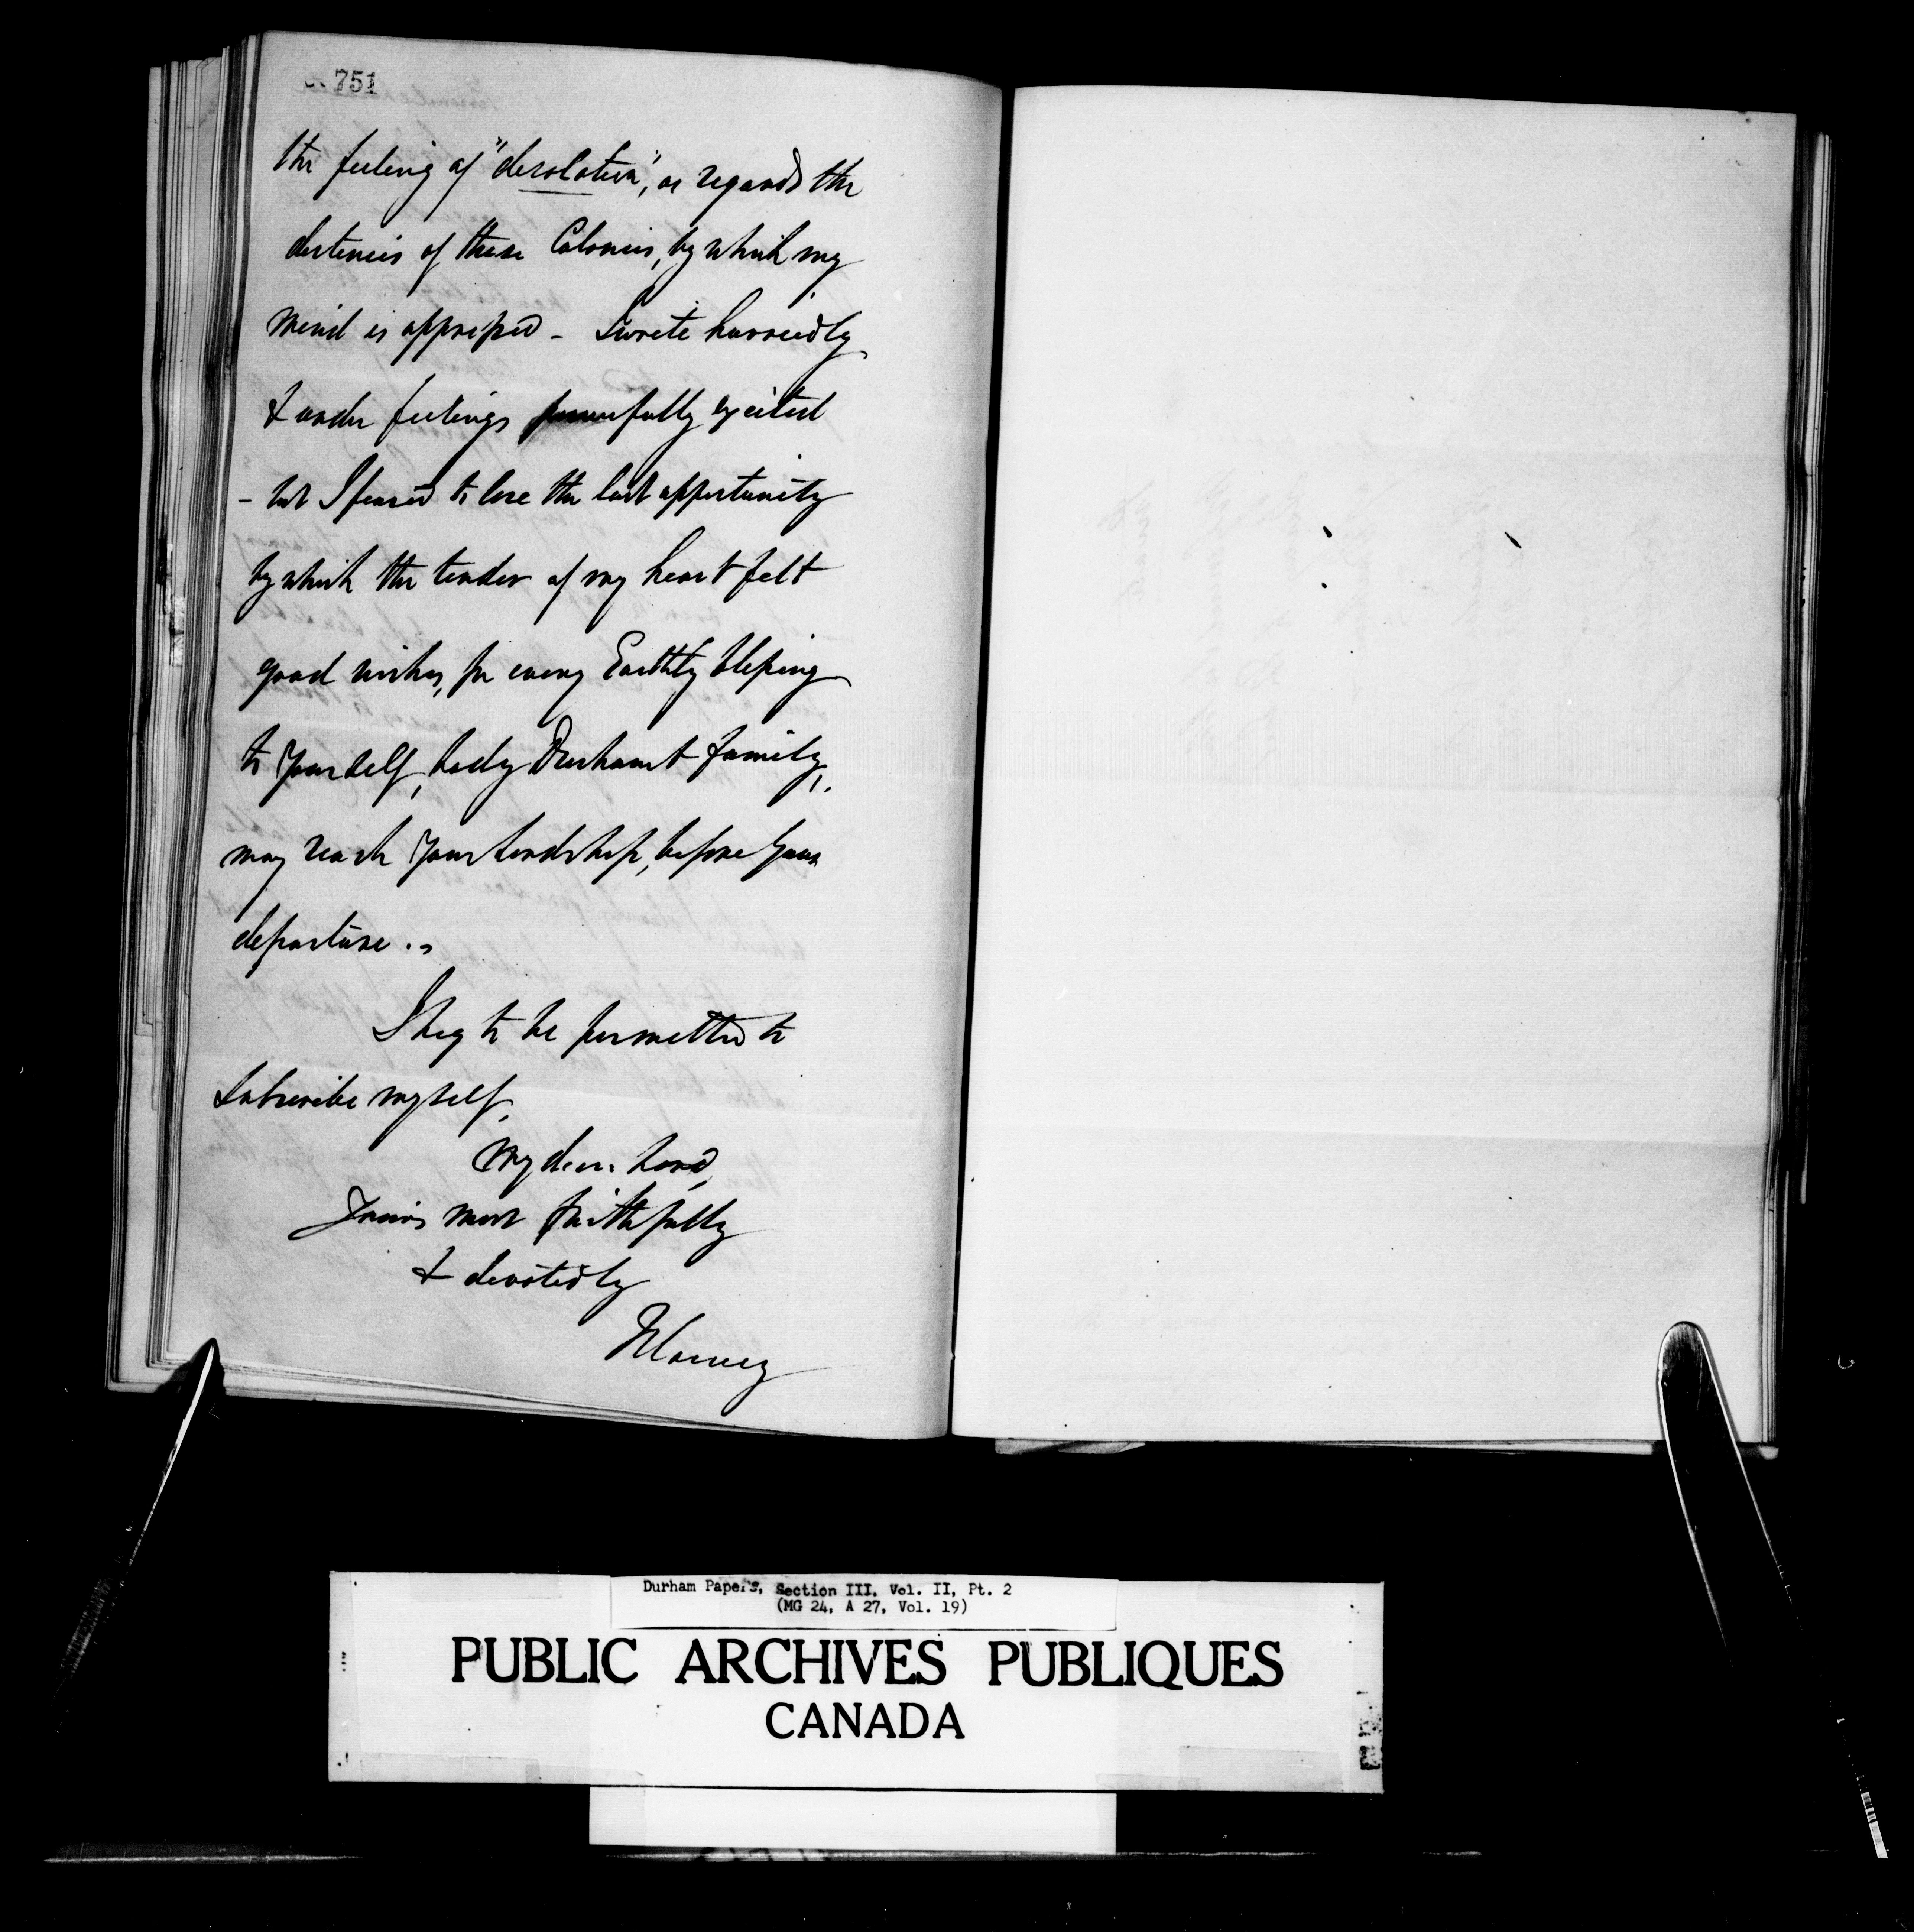 751
the feeling of "desolation", as regards the
destinies of these Colonies, by which my
mind is oppressed - I write hurriedly
& under feelings powerfully excited
- but I feared to lose the last opportunity
by which the tender of my heart felt
good wishes, for every Earthly blessing
to Yourself, Lady Durham & family,
may reach Your Lordship, before Your
departure.
I beg to be permitted to
Subscribe myself,
My dear Lord,
Yours most faithfully
& devotedly
J Harvey
Durham Papers, Section III. Vol. II, Pt. 2
(MG 24, A 27, Vol. 19)
PUBLIC ARCHIVES PUBLIQUES
CANADA